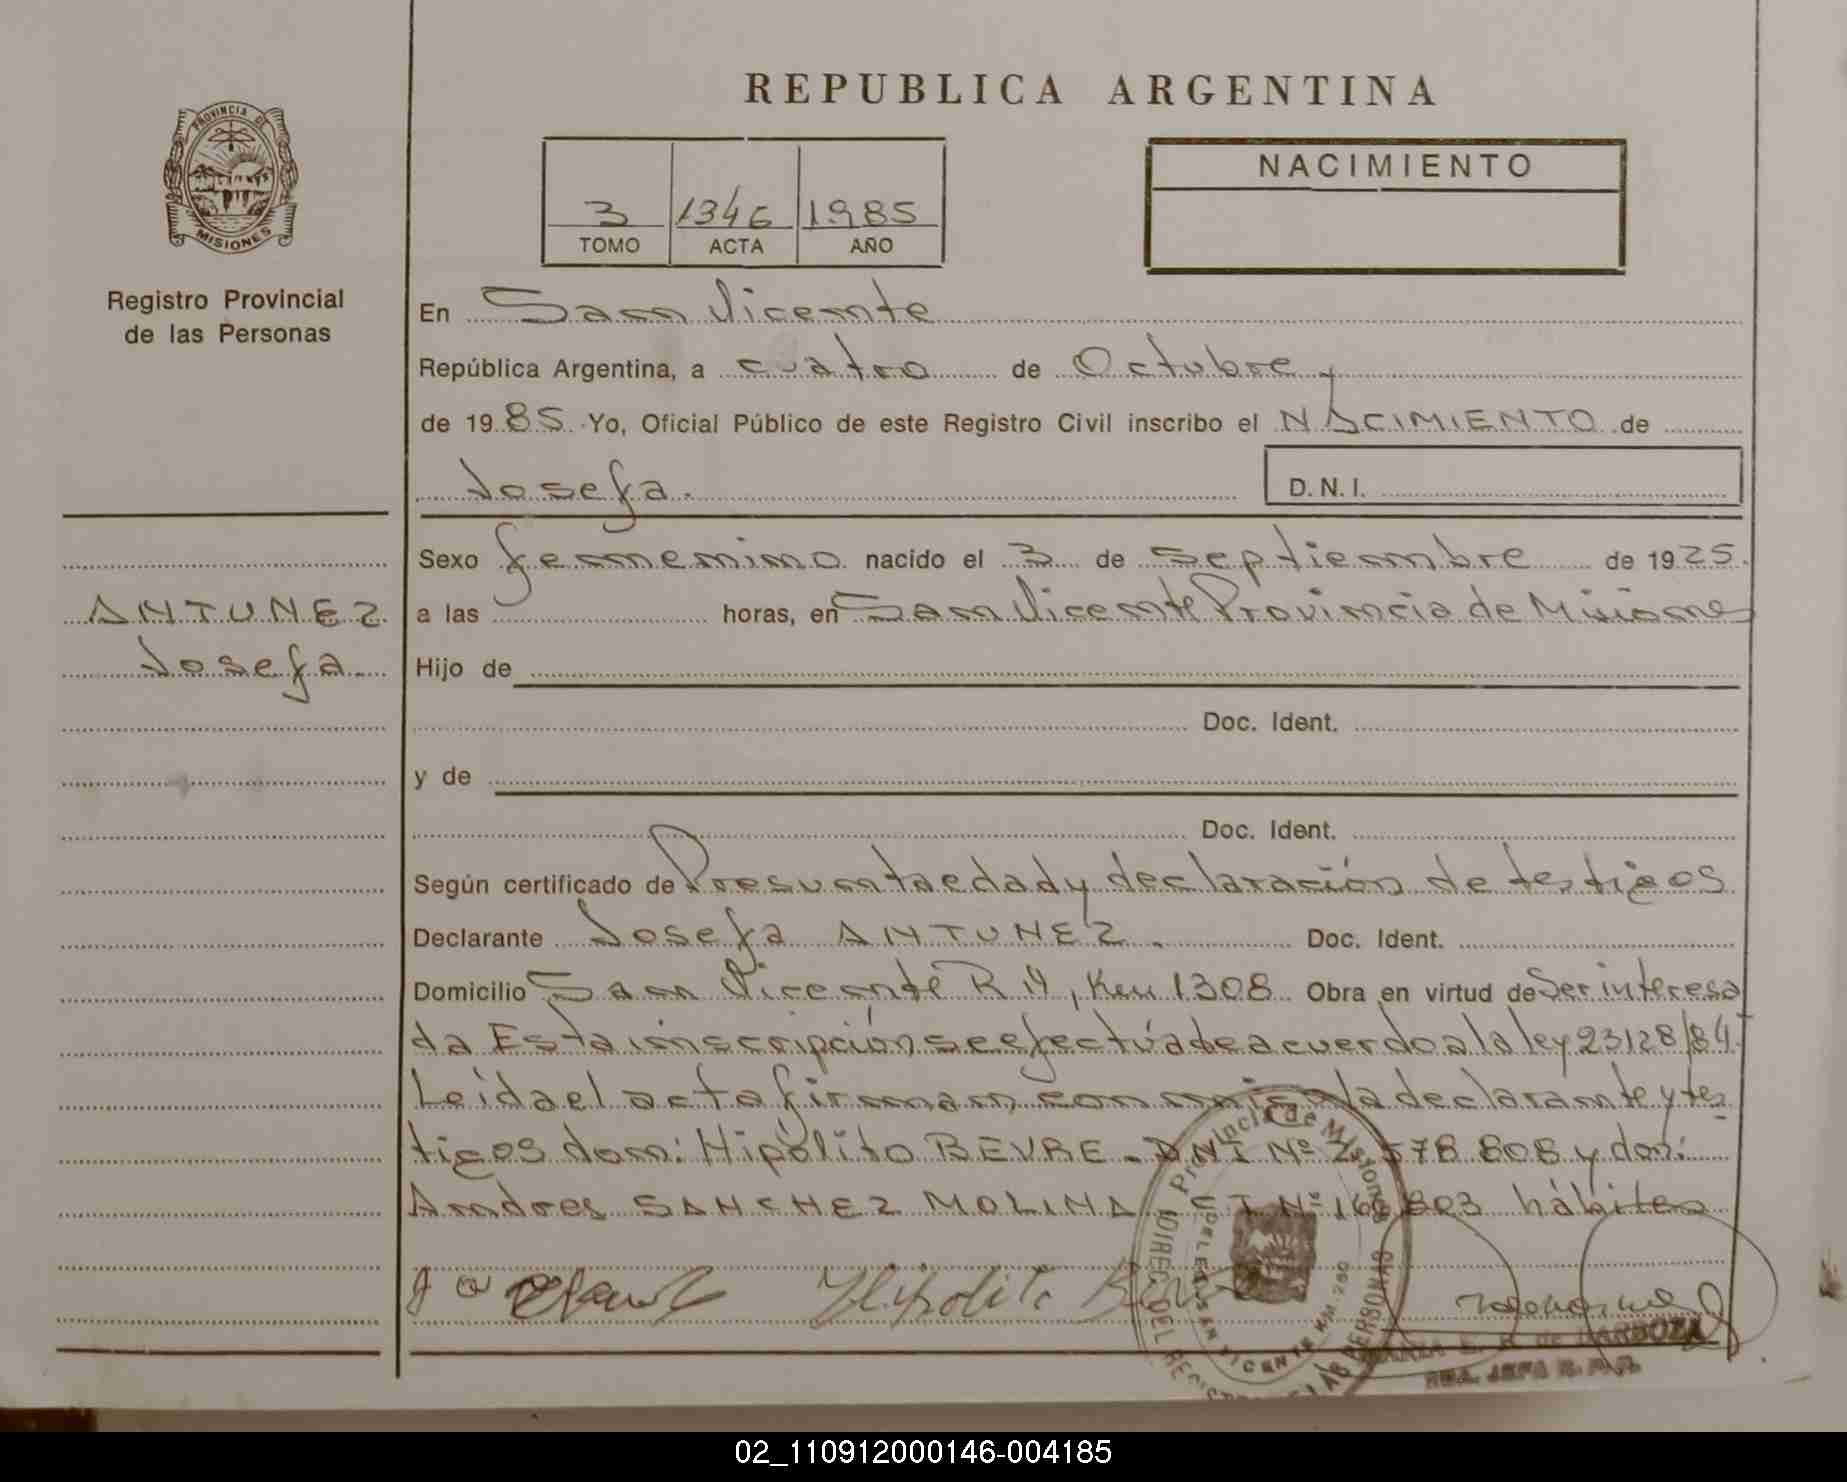 REPUBLICA ARGENTINA
PROVINCIA DE
MISIONES
Registro Provincial
de las Personas
3 1346 1985
TOMO ACTA AÑO
NACIMIENTO
En San Vicente
República Argentina, a cuatro de Octubre
de 1985 Yo, Oficial Público de este Registro Civil inscribo el NACIMIENTO de
Josefa.
D.N.I.
ANTUNEZ
Josefa
Sexo femenino nacido el 3 de septiembre de 1925.
a las horas, en San Vicente Provincia de Misiones
Hijo de
Doc. Ident.
y de
Doc. Ident.
Según certificado de Presunta edad y declaración de testigos
Declarante Josefa ANTUNEZ. Doc. Ident.
Domicilio San Vicente R 14, Km 1308 Obra en virtud de Ser interesa
da Esta inscripción se efectúa de acuerdo a la ley 23128/84.
Leída el acta firman conmigo la declarante y tes
tigos don: Hipólito BEVRE. DNI Nº 578 808 y don:
Andres SANCHEZ MOLINA CI Nº hábiles
Hipolito
Provincia de Misiones
SAN VICENTE KM.
DEL LAS PERSONAS
DE CARDOZA
JEFA R. P. P.
02_110912000146-004185